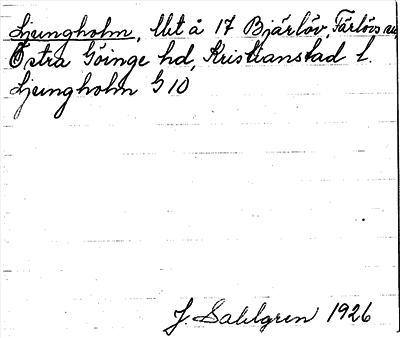 Ljungholm, lht å 17 Bjärlöv, Färlövs sn,
Östra Göinge hd, Kristianstad l.
Ljungholm G 10
J. Sahlgren 1926